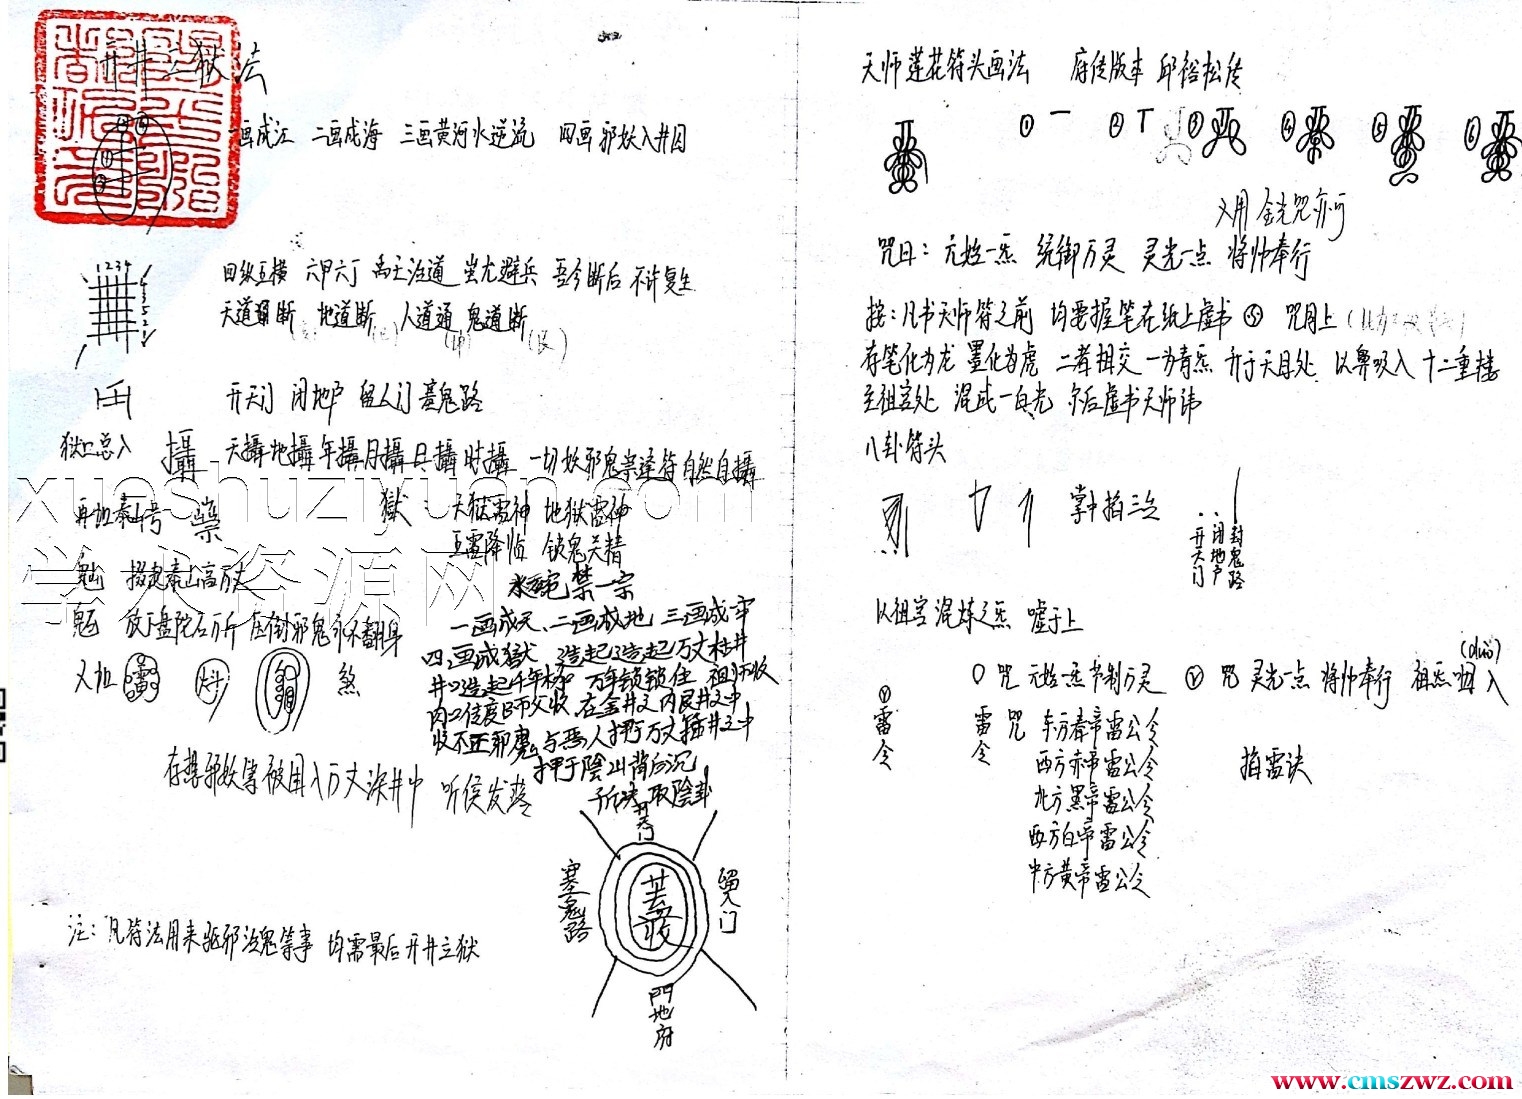 开井立狱法
一画成江 二画成海 三画黄河水逆流 四画邪妖入井囚
1 2 3 4
四纵五横 六甲六丁 禹王治道 蚩尤避兵 吾今断后 不许复生
天道断 地道断 人道通 鬼道断
开天门 闭地户 留人门 塞鬼路
攝 天攝地攝年攝月攝日攝时攝 一切妖邪鬼祟逢符自然自攝
再加泰山号
獄：天狱雷神 地狱雷神
五雷降临 锁鬼关精
魁 掇起泰山高万丈
放下盘陀石万斤 压倒邪鬼永不翻身
又加 煞
禁一宗
一画成天、二画成地 三画成牢
四画成獄 造起造起万丈枯井
万年锁锁住 祖师收
收不正邪魔与恶人押于万丈井之中
押于陰山背后沉
存想邪妖等被困入万丈深井中 听侯发落
开天门
塞鬼路
留人门
地府
收
注：凡符法用来驱邪治鬼等事 均需最后开井立狱
天师莲花符头画法 府传版本 邱裕松传
① ② ③ ④ ⑤ ⑥
又用金光咒亦可
咒曰：元始一炁 统御万灵 灵光一点 将帅奉行
按：凡书天师符之前 均要握笔在纸上虚书 咒同上
存笔化为龙 墨化为虎 二者相交 一为青炁 升于天目处 以鼻吸入十二重楼
至祖宫处 混成一白光 尔后虚书天师讳
八卦符头
掌中掐三次
开天门
闭地户
封鬼路
以祖宫混炼之炁 嘘于上
咒 元始一炁 节制万灵 咒 灵光一点 将帅奉行 祖炁 入
雷令
雷令
咒 东方青帝雷公令
西方赤帝雷公令
北方黑帝雷公令
西方白帝雷公令
中方黄帝雷公令
掐雷诀
xueshuziyuan.com
学术资源网
www.cmszwz.com